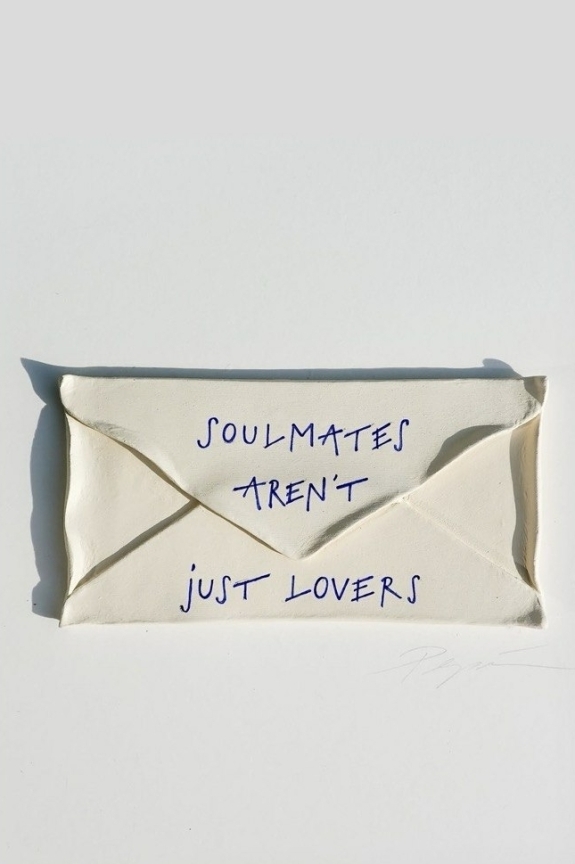 SOULMATES
AREN'T
jUST LOVERS